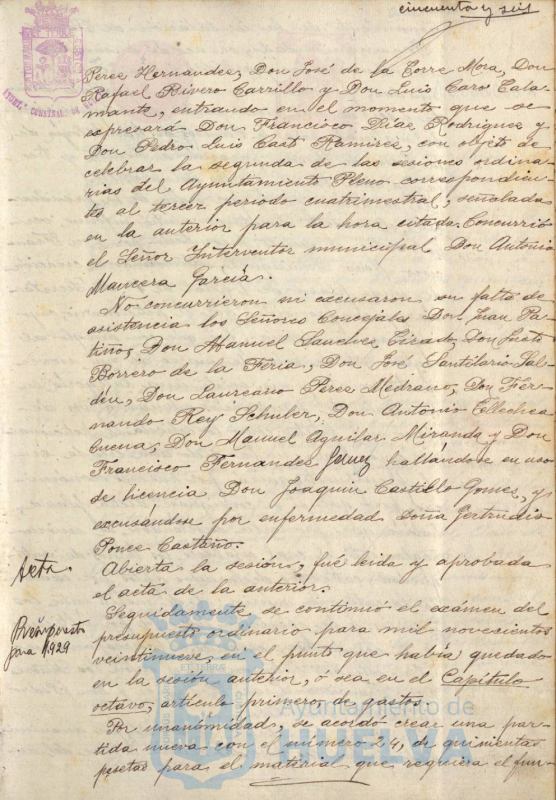 cincuenta y seis
Perez Hernandez, Don José de la Torre Mora, Don
Rafael Rivero Carrillo y Don Luis Caro Tala-
mante, entrando en el momento que se
expresará Don Francisco Díaz Rodriguez y
Don Pedro Luis Casto Ramirez, con objeto de
celebrar la segunda de las sesiones ordina-
rias del Ayuntamiento Pleno correspondien-
tes al tercer periodo cuatrimestral, señalada
en la anterior para la hora citada. Concurrió
el Señor Interventor municipal Don Antonio
Mancera García.
No concurrieron ni excusaron su falta de
asistencia los Señores Concejales Don Juan Pa-
tiño, Don Manuel Sanchez Tirado, Don Justo
Borrero de la Feria, Don José Santilario Sal-
den, Don Laureano Perez Medrano, Don Fer-
nando Rey Schuber, Don Antonio Tellechea
Cuena, Don Manuel Aguilar Miranda y Don
Francisco Fernandez Jerez hallándose en uso
de licencia Don Joaquin Castillo Gomez, y
excusándose por enfermedad Doña Gertrudis
Ponce Castaño.
Acta.
Abierta la sesión, fué leida y aprobada
el acta de la anterior.
Presupuesto
para 1929
Seguidamente se continuó el exámen del
presupuesto ordinario para mil novecientos
veintinueve, en el punto que había quedado
en la sesión anterior, ó sea en el Capítulo
octavo, artículo primero, de gastos.
Por unanimidad, se acordó crear una par-
tida nueva con el número 24, de quinientas
pesetas para el material que requiera el fun-
Ayuntamiento de
HUELVA